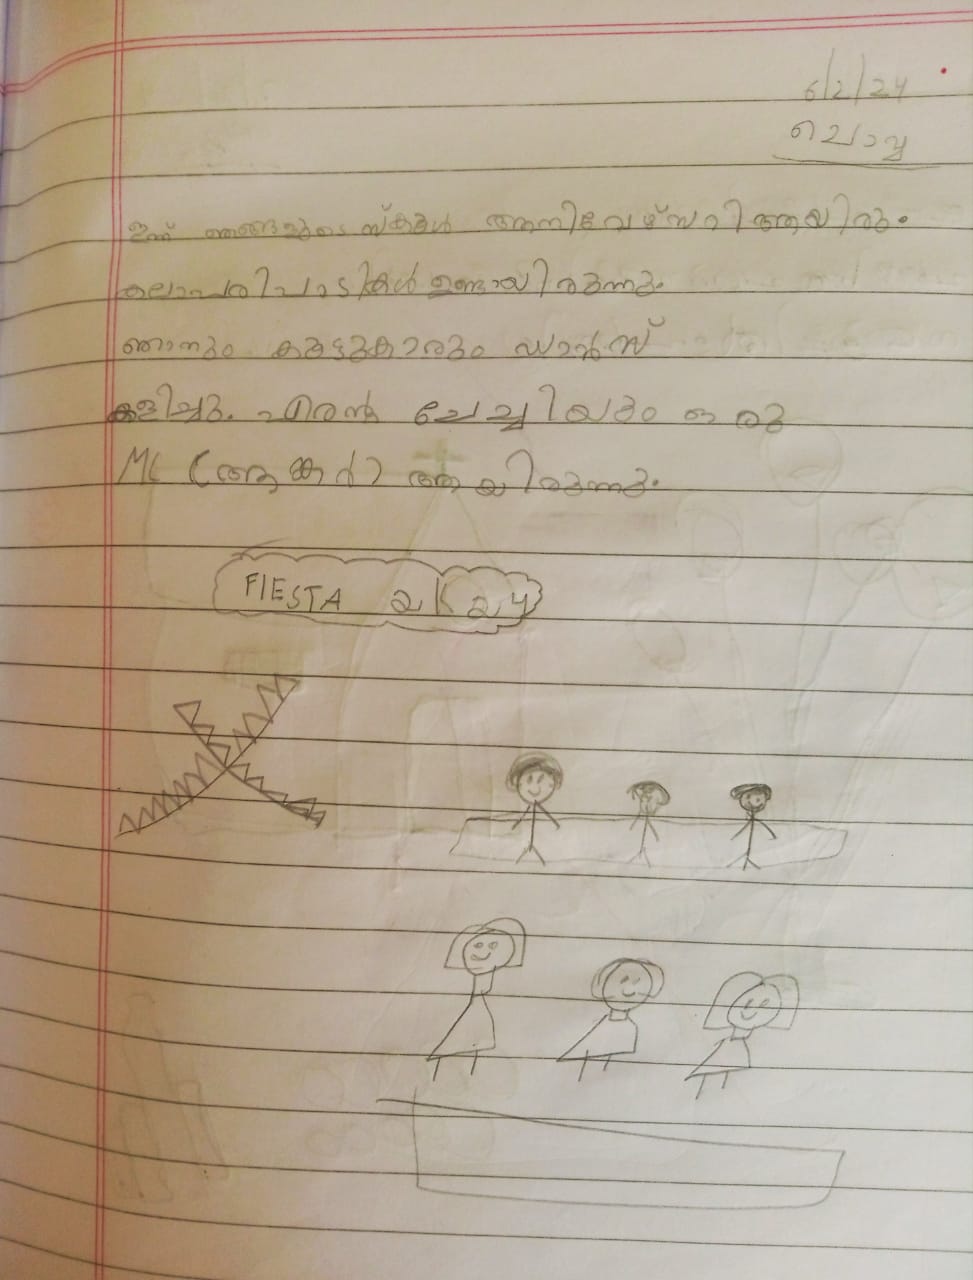 6/2/24
ചൊവ്വ
ഇന്ന് ഞങ്ങളുടെ സ്കൂൾ ആനിവേഴ്സറി ആയിരു.
കലാപരിപാടികൾ ഉണ്ടായിരുന്നു.
ഞാനും കൂട്ടുകാരും ഡാൻസ്
കളിച്ചു. എൻ്റെ ചേച്ചിയും ഒരു
MC (ആങ്കർ) ആയിരുന്നു.
FIESTA 2K24